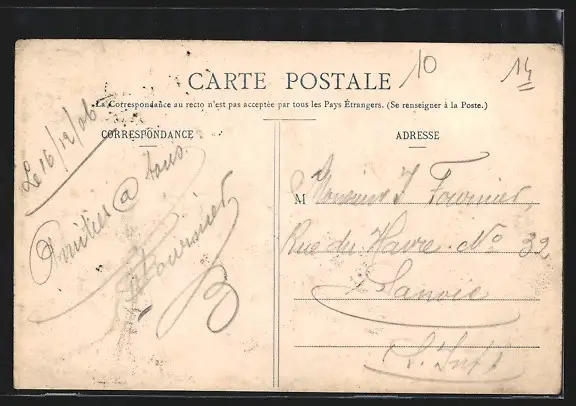 10
14
CARTE POSTALE
La Correspondance au recto n'est pas acceptée par tous les Pays Étrangers. (Se renseigner à la Poste.)
CORRESPONDANCE
Le 16/12/06
Amitiés @ tous.
Fournier
ADRESSE
M Monsieur J Fournier
Rue du Havre No 32
Sanvic
S. Infre